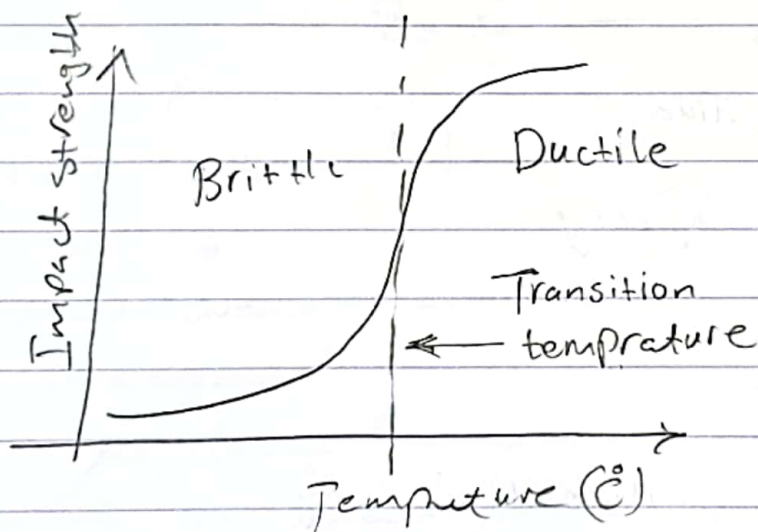 Impact Strength
Brittle
Ductile
Transition
temprature
Tempreture (C°)